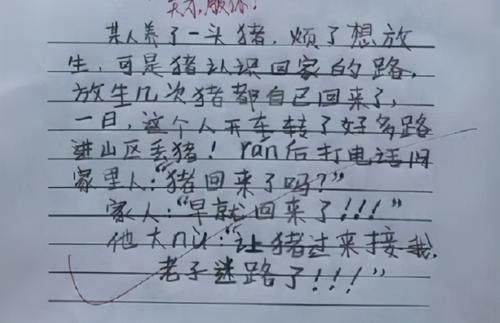 某人养了一头猪，烦了想放
生，可是猪认识回家的路，
放生几次猪都自已回来了，
一日，这个人开车转了好多路
进山区丢猪！ran后打电话问
家里人："猪回来了吗？"
家人："早就回来了！！！"
他大nù："让猪过来接我，
老子迷路了！！！"